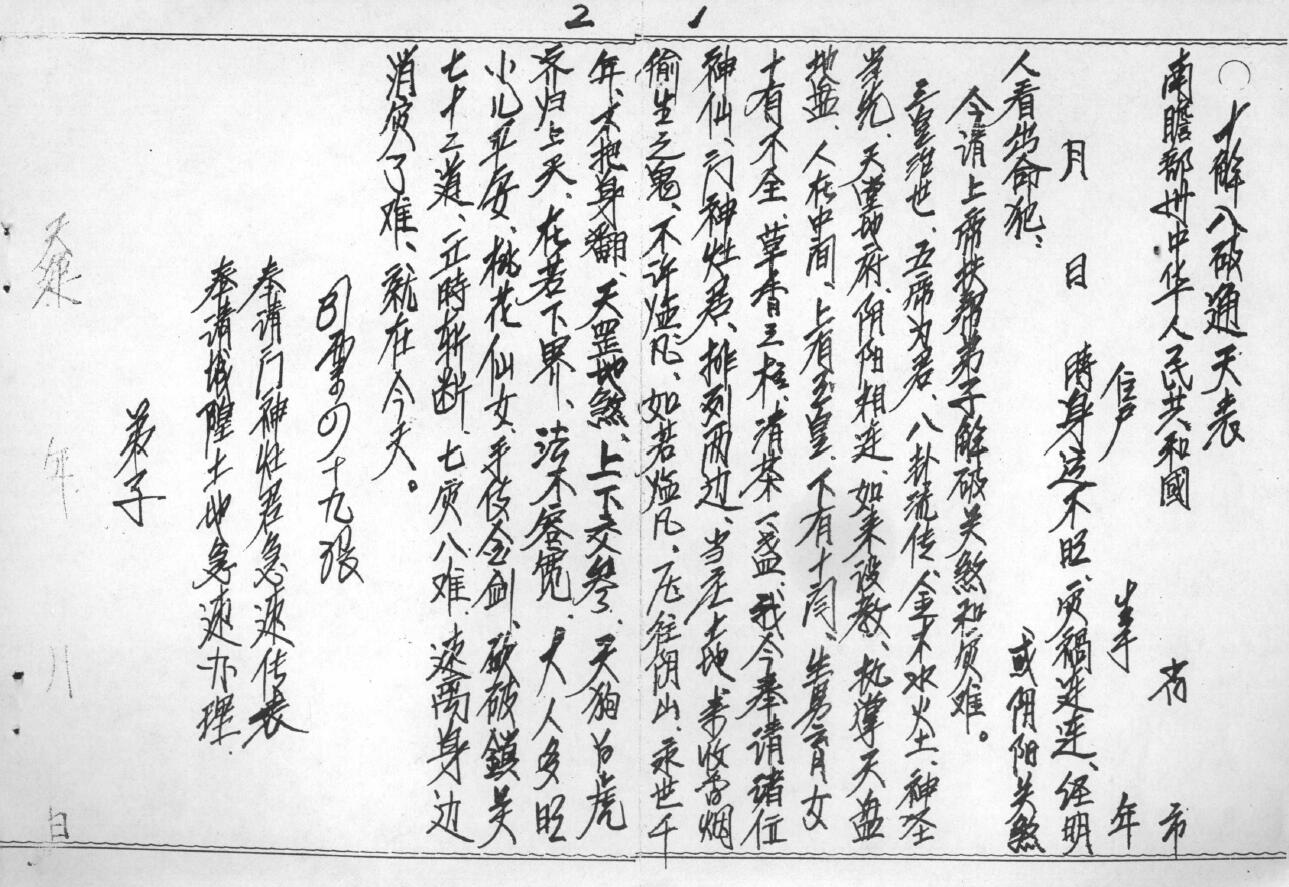 1
2
十解八破通天表
南瞻部州中华人民共和國 省 市
信户 生于 年
月 日 時身运不旺、灾禍连连、经明
人看出命犯、 或阴阳关煞
今请上帝扶帮弟子解破关煞和灾难。
三皇治世、五帝为君、八卦流传、金木水火土、神圣
当先、天堂地府、阴阳相连、如来设教、执掌天盘
地盘、人在中间、上有玉皇、下有十閆、生男育女
十有不全、草香三柱、清茶一盏、我今奉请诸位
神仙、门神灶君、排列两边、当庄土地来收香烟
偷生之鬼、不许临凡、如若临凡、压往阴山、永世千
年、不把身翻、天罡地煞、上下交叁、天狗白虎
齐归上天、在若下界、法不容宽、大人多旺
小儿平安、桃花仙女、手伎金剑、砍破鎖关
七十二道、立時斩断、七灾八难、速离身边
消灾了难、就在今天。
引雷四十九张
奉请门神灶君急速传表
奉请城隍土地急速办理.
弟子
天缘 年 月 日